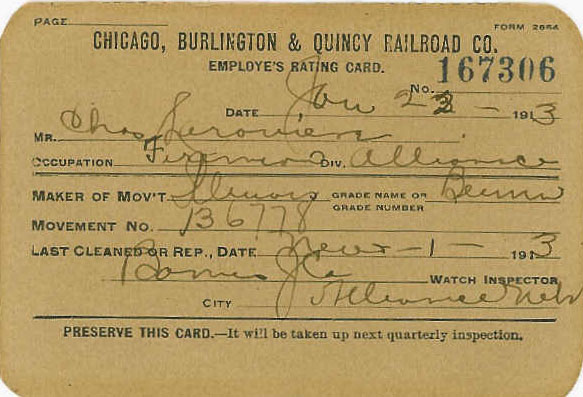 PAGE
FORM 2664
CHICAGO, BURLINGTON & QUINCY RAILROAD CO.
EMPLOYE'S RATING CARD.
No. 167306
DATE Jan 23 - 1913
MR. Chas
OCCUPATION Fireman DIV. Alliance
MAKER OF MOV'T Illinois GRADE NAME OR GRADE NUMBER Bunn
MOVEMENT No. 136778
LAST CLEANED OR REP., DATE New - 1 - 1913
WATCH INSPECTOR
CITY Alliance Neb
PRESERVE THIS CARD.—It will be taken up next quarterly inspection.